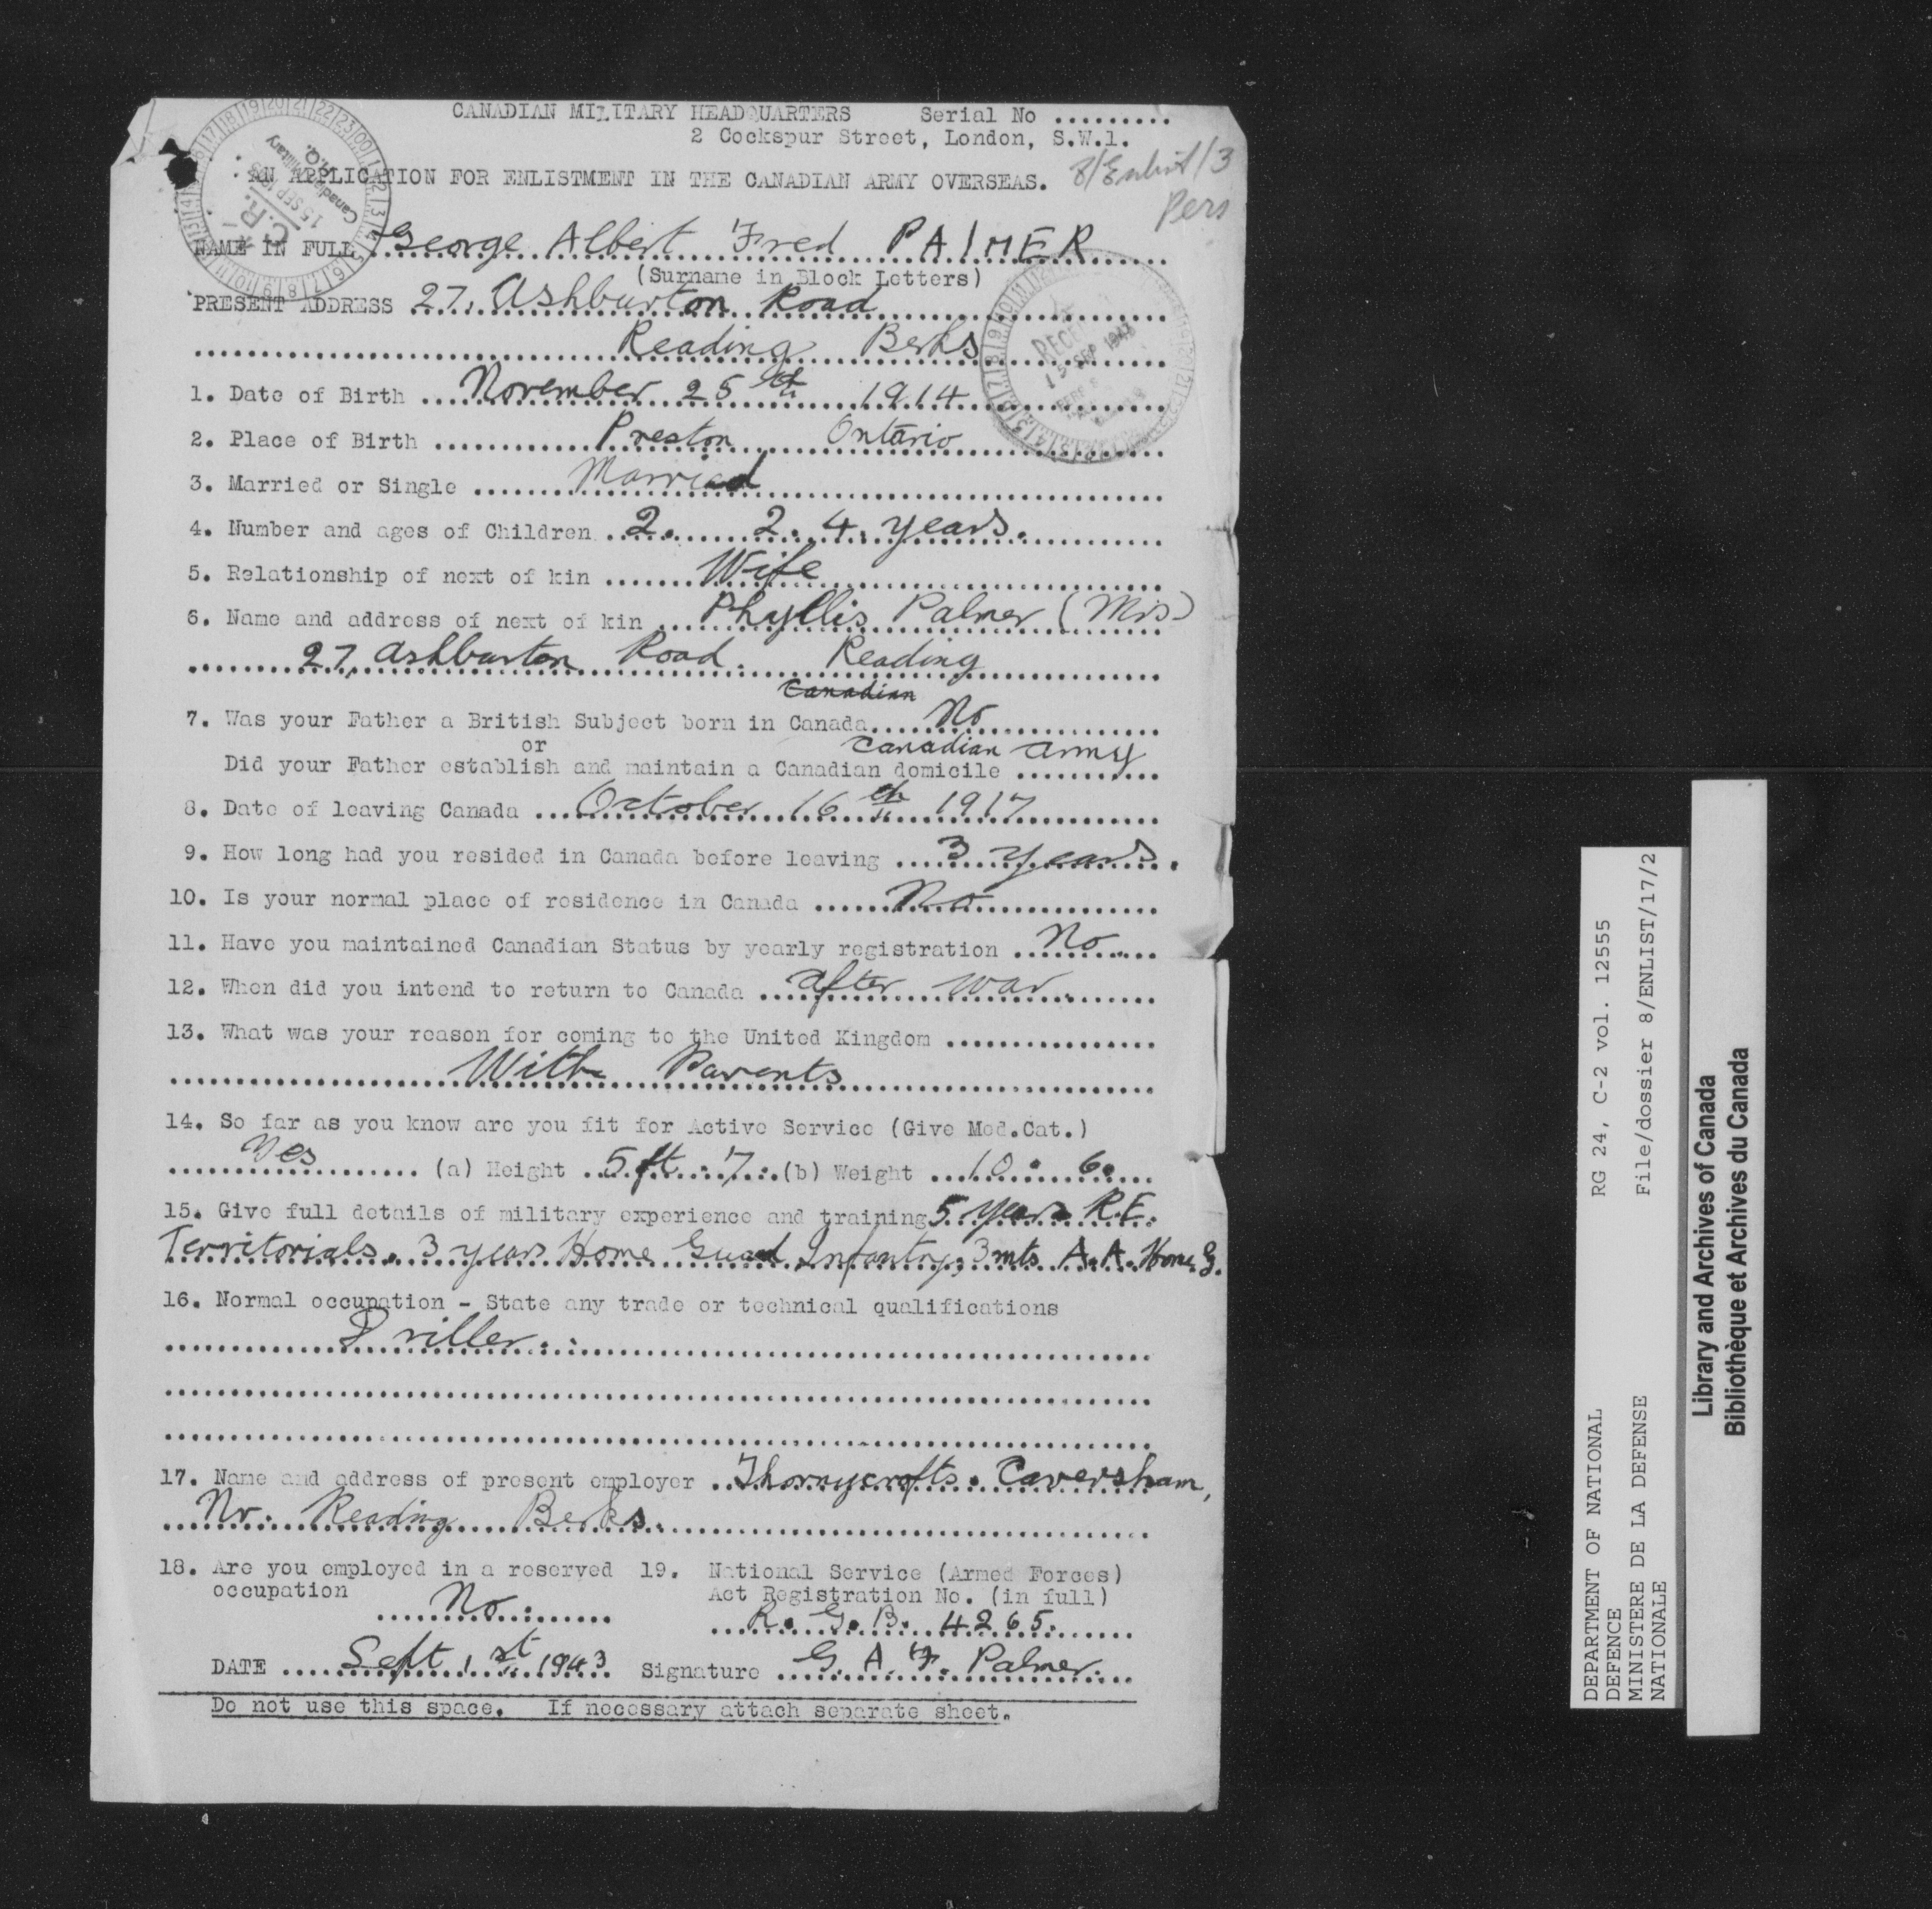 CANADIAN MILITARY HEADQUARTERS Serial No .........
2 Cockspur Street, London, S.W.1.
AN APPLICATION FOR ENLISTMENT IN THE CANADIAN ARMY OVERSEAS. 8/Enlist/3
Pers
C.R.
15 SEP
Canadian Military
H.Q.
NAME IN FULL George Albert Fred PALMER
(Surname in Block Letters)
PRESENT ADDRESS 27, Ashburton Road
Reading Berks
15 SEP 1943
1. Date of Birth November 25th 1914
2. Place of Birth Preston Ontario
3. Married or Single Married
4. Number and ages of Children 2. 2. 4. years.
5. Relationship of next of kin Wife
6. Name and address of next of kin Phyllis Palmer (Mrs)
27, Ashburton Road. Reading
Canadian
7. Was your Father a British Subject born in Canada No
or Canadian Army
Did your Father establish and maintain a Canadian domicile
8. Date of leaving Canada October 16th 1917
9. How long had you resided in Canada before leaving 3 years.
10. Is your normal place of residence in Canada No
11. Have you maintained Canadian Status by yearly registration No
12. When did you intend to return to Canada after war
13. What was your reason for coming to the United Kingdom
With Parents
14. So far as you know are you fit for Active Service (Give Med.Cat.)
Yes (a) Height 5 ft. 7. (b) Weight 10. 6.
15. Give full details of military experience and training 5 years R.E.
Territorials. 3 years Home Guard Infantry, 3 mts A.A. Home G.
16. Normal occupation - State any trade or technical qualifications
Driller.
17. Name and address of present employer Thornycrofts. Caversham,
Nr. Reading Berks.
18. Are you employed in a reserved occupation No.
19. National Service (Armed Forces)
Act Registration No. (in full)
R.G.B. 4265.
DATE Sept 1st 1943 Signature G. A. F. Palmer.
Do not use this space. If necessary attach separate sheet.
DEPARTMENT OF NATIONAL RG 24, C-2 vol. 12555
DEFENCE
MINISTERE DE LA DEFENSE File/dossier 8/ENLIST/17/2
NATIONALE
Library and Archives of Canada
Bibliothèque et Archives du Canada